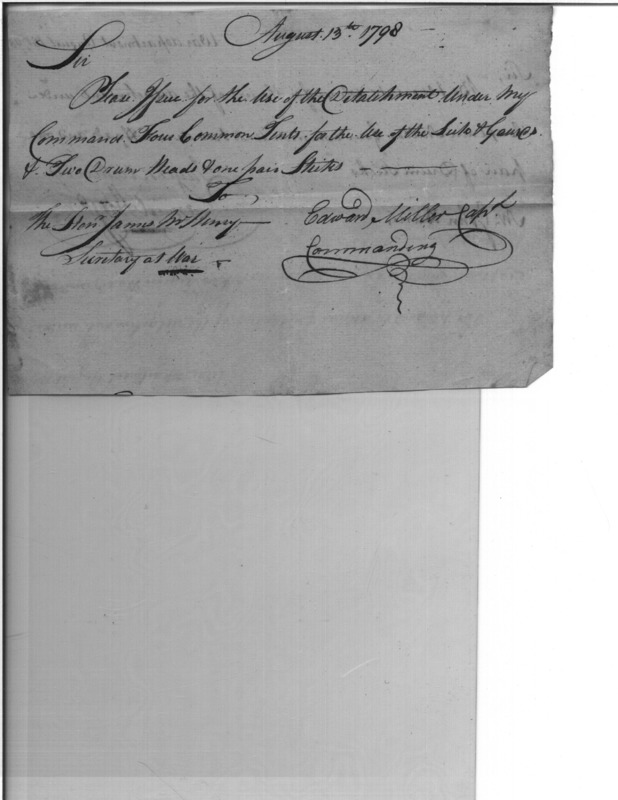 August 13th 1798
Sir
Please Issue for the Use of the Detatchment Under my
Command Four Common Tents for the Use of the Sick & Gaurds
& Two Drum Heads & one pair Sticks
To
The Honl James McHenry
Edward Miller Capt
Commanding
Secretary at War